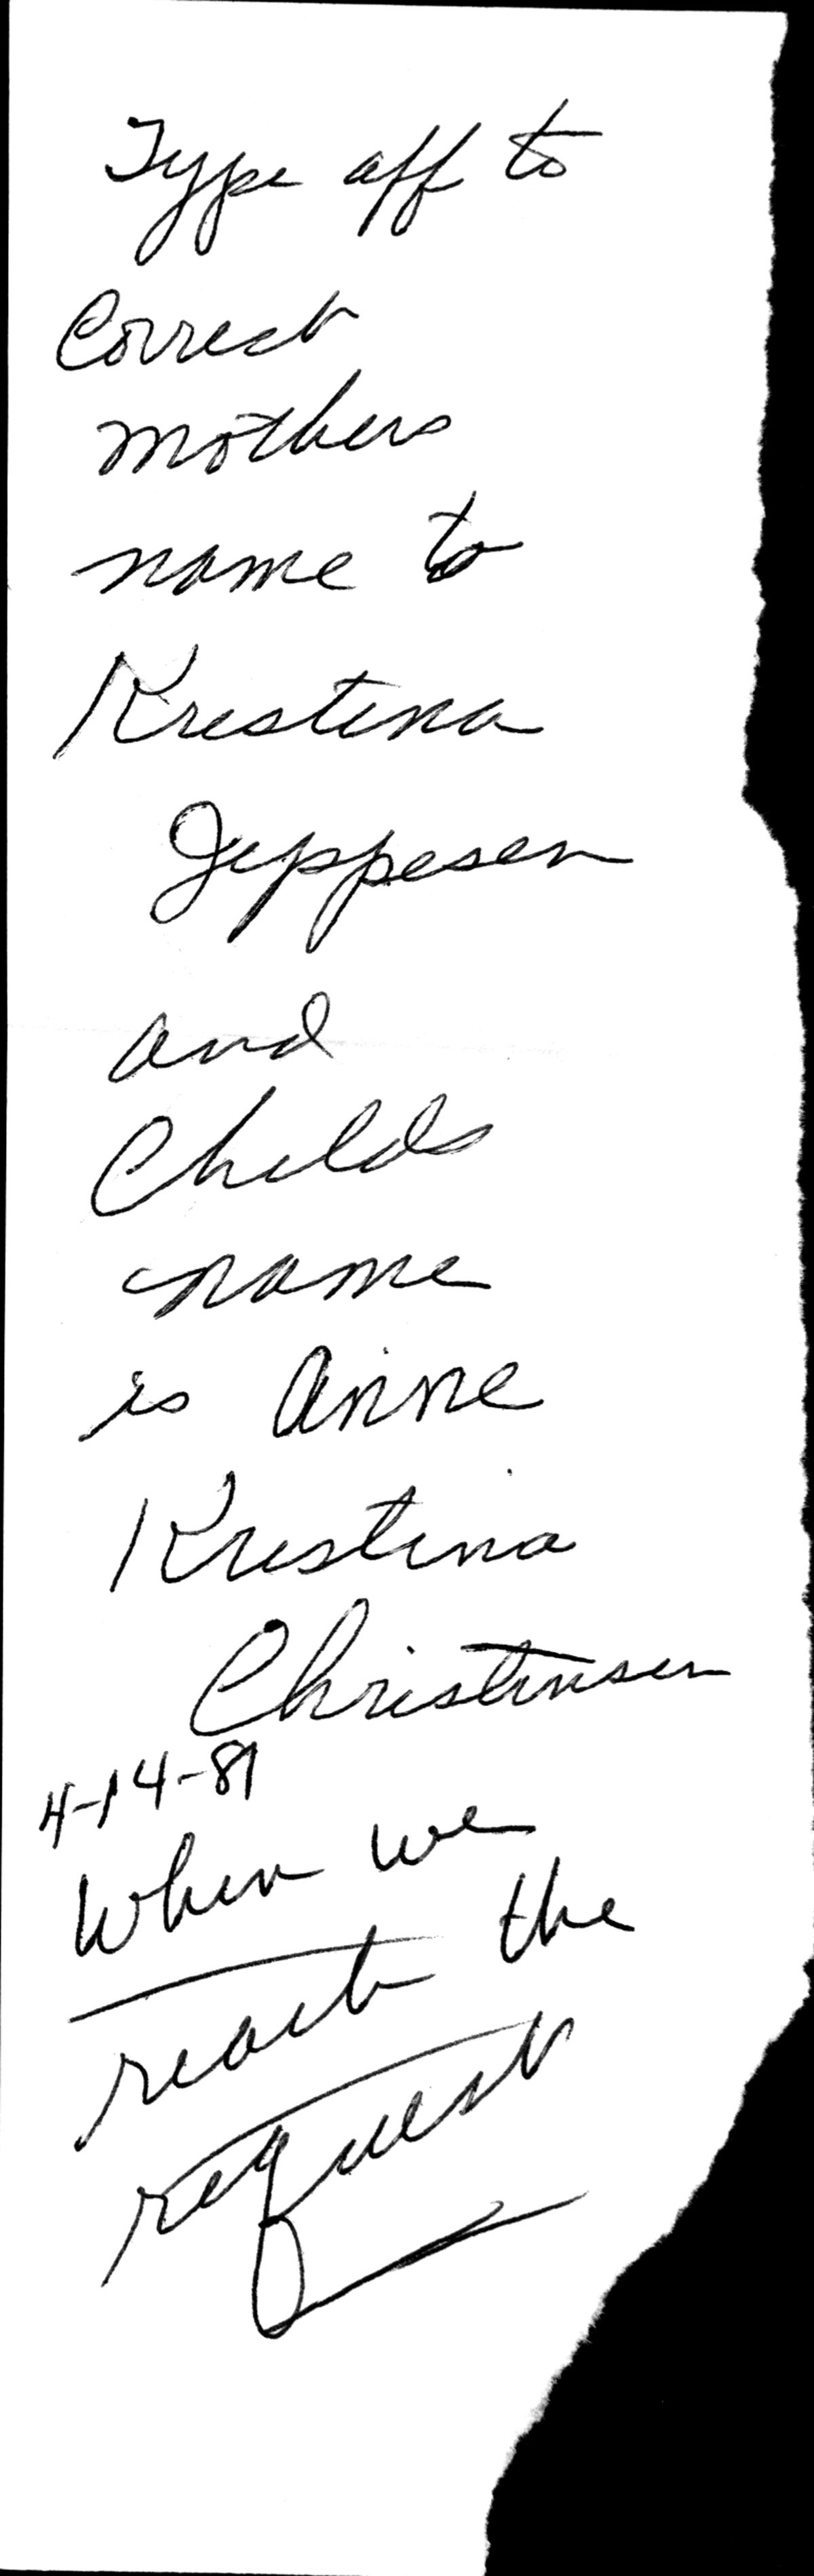 Type aff to
Correct
mothers
name to
Kristina
Jeppesen
and
Childs
name
is Anne
Kristina
Christensen
4-14-81
When we
reach the
request